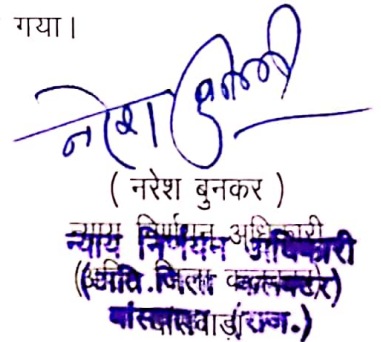 गया।
नरेश
( नरेश बुनकर )
न्याय निर्णयन अधिकारी
(अति. जिला कलक्टर)
बांसवाड़ा(राज.)